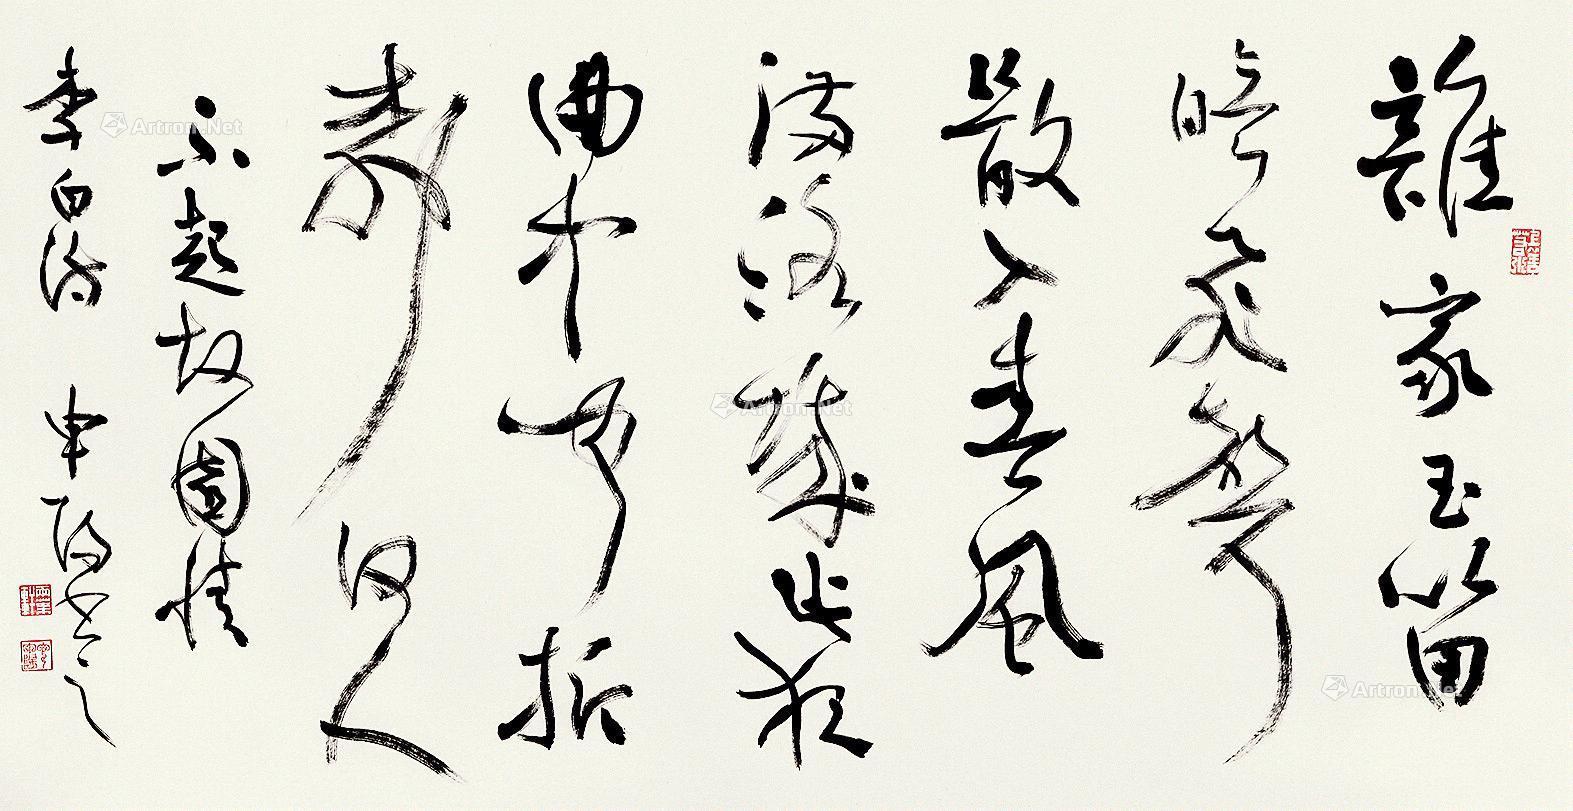 誰家玉笛
暗飛聲
散入春風
滿洛城此夜
曲中聞折
柳何人
不起故園情
李白詩 申 書之
Artron.Net
Artron.Net
Artron.Net